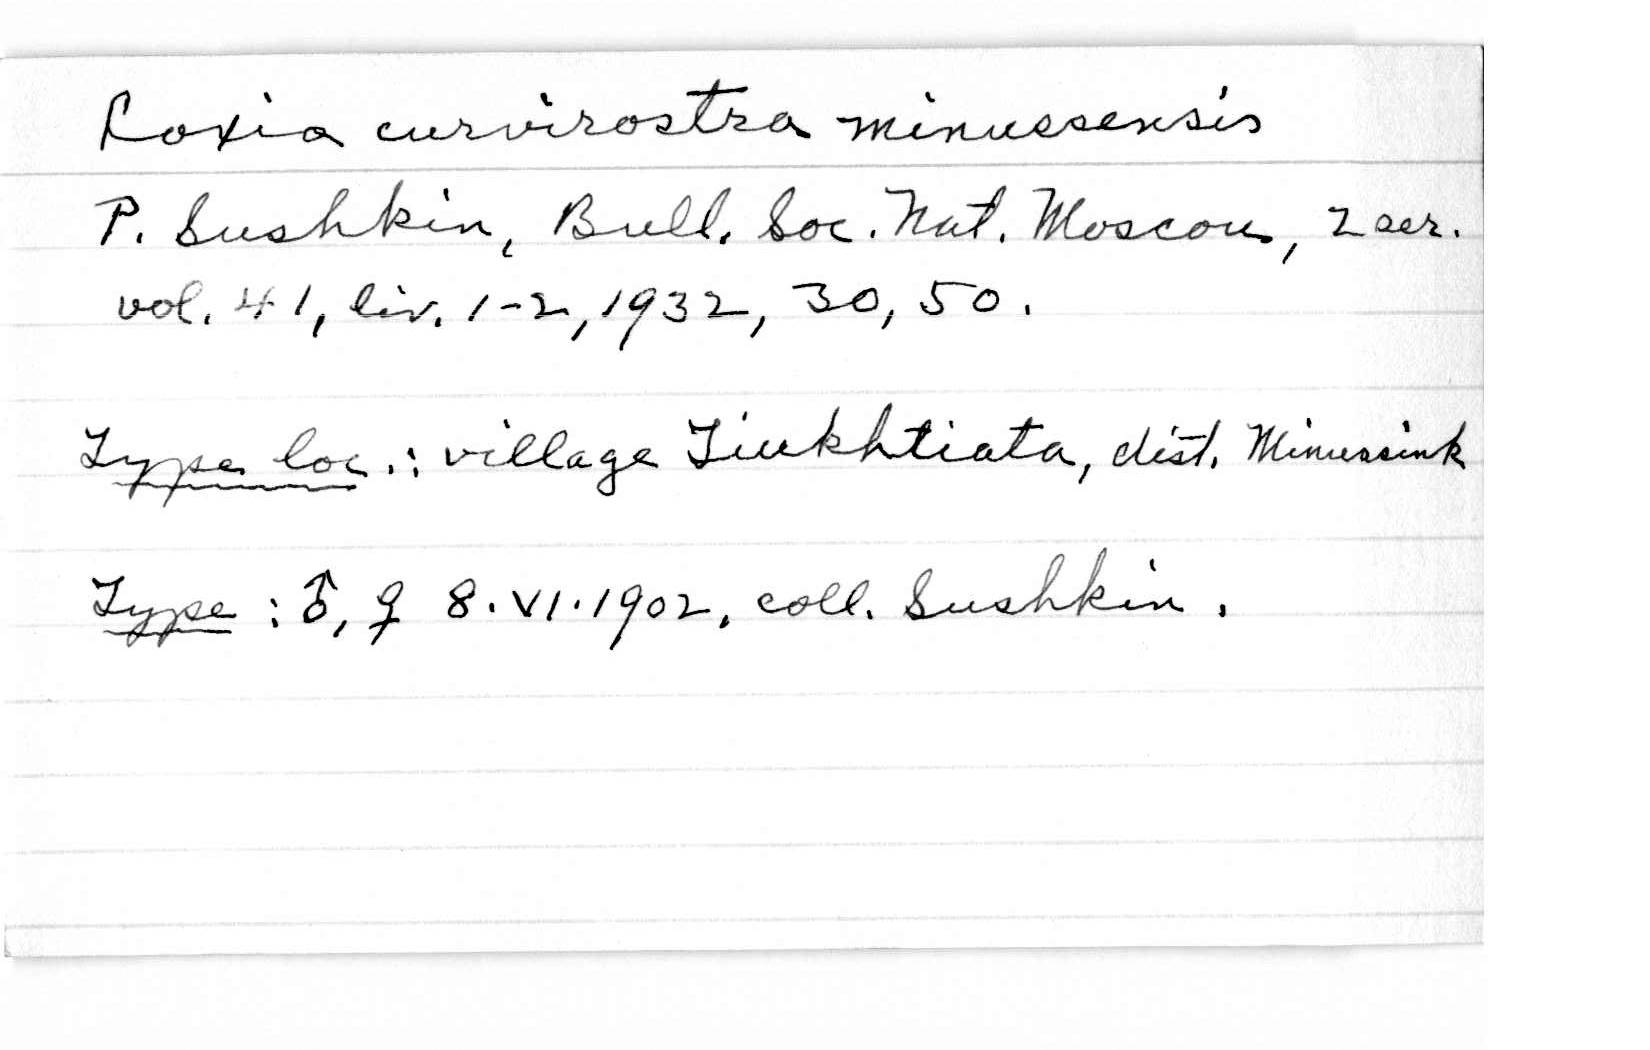 Loxia curvirostra minussensis
P. Sushkin, Bull. Soc. Nat. Moscou, 2 ser.
vol. 41, liv. 1-2, 1932, 30, 50.
Type loc.: village Tiukhtiata, dist. Minussink
Type: ♂, ♀ 8.VI.1902, coll. Sushkin.